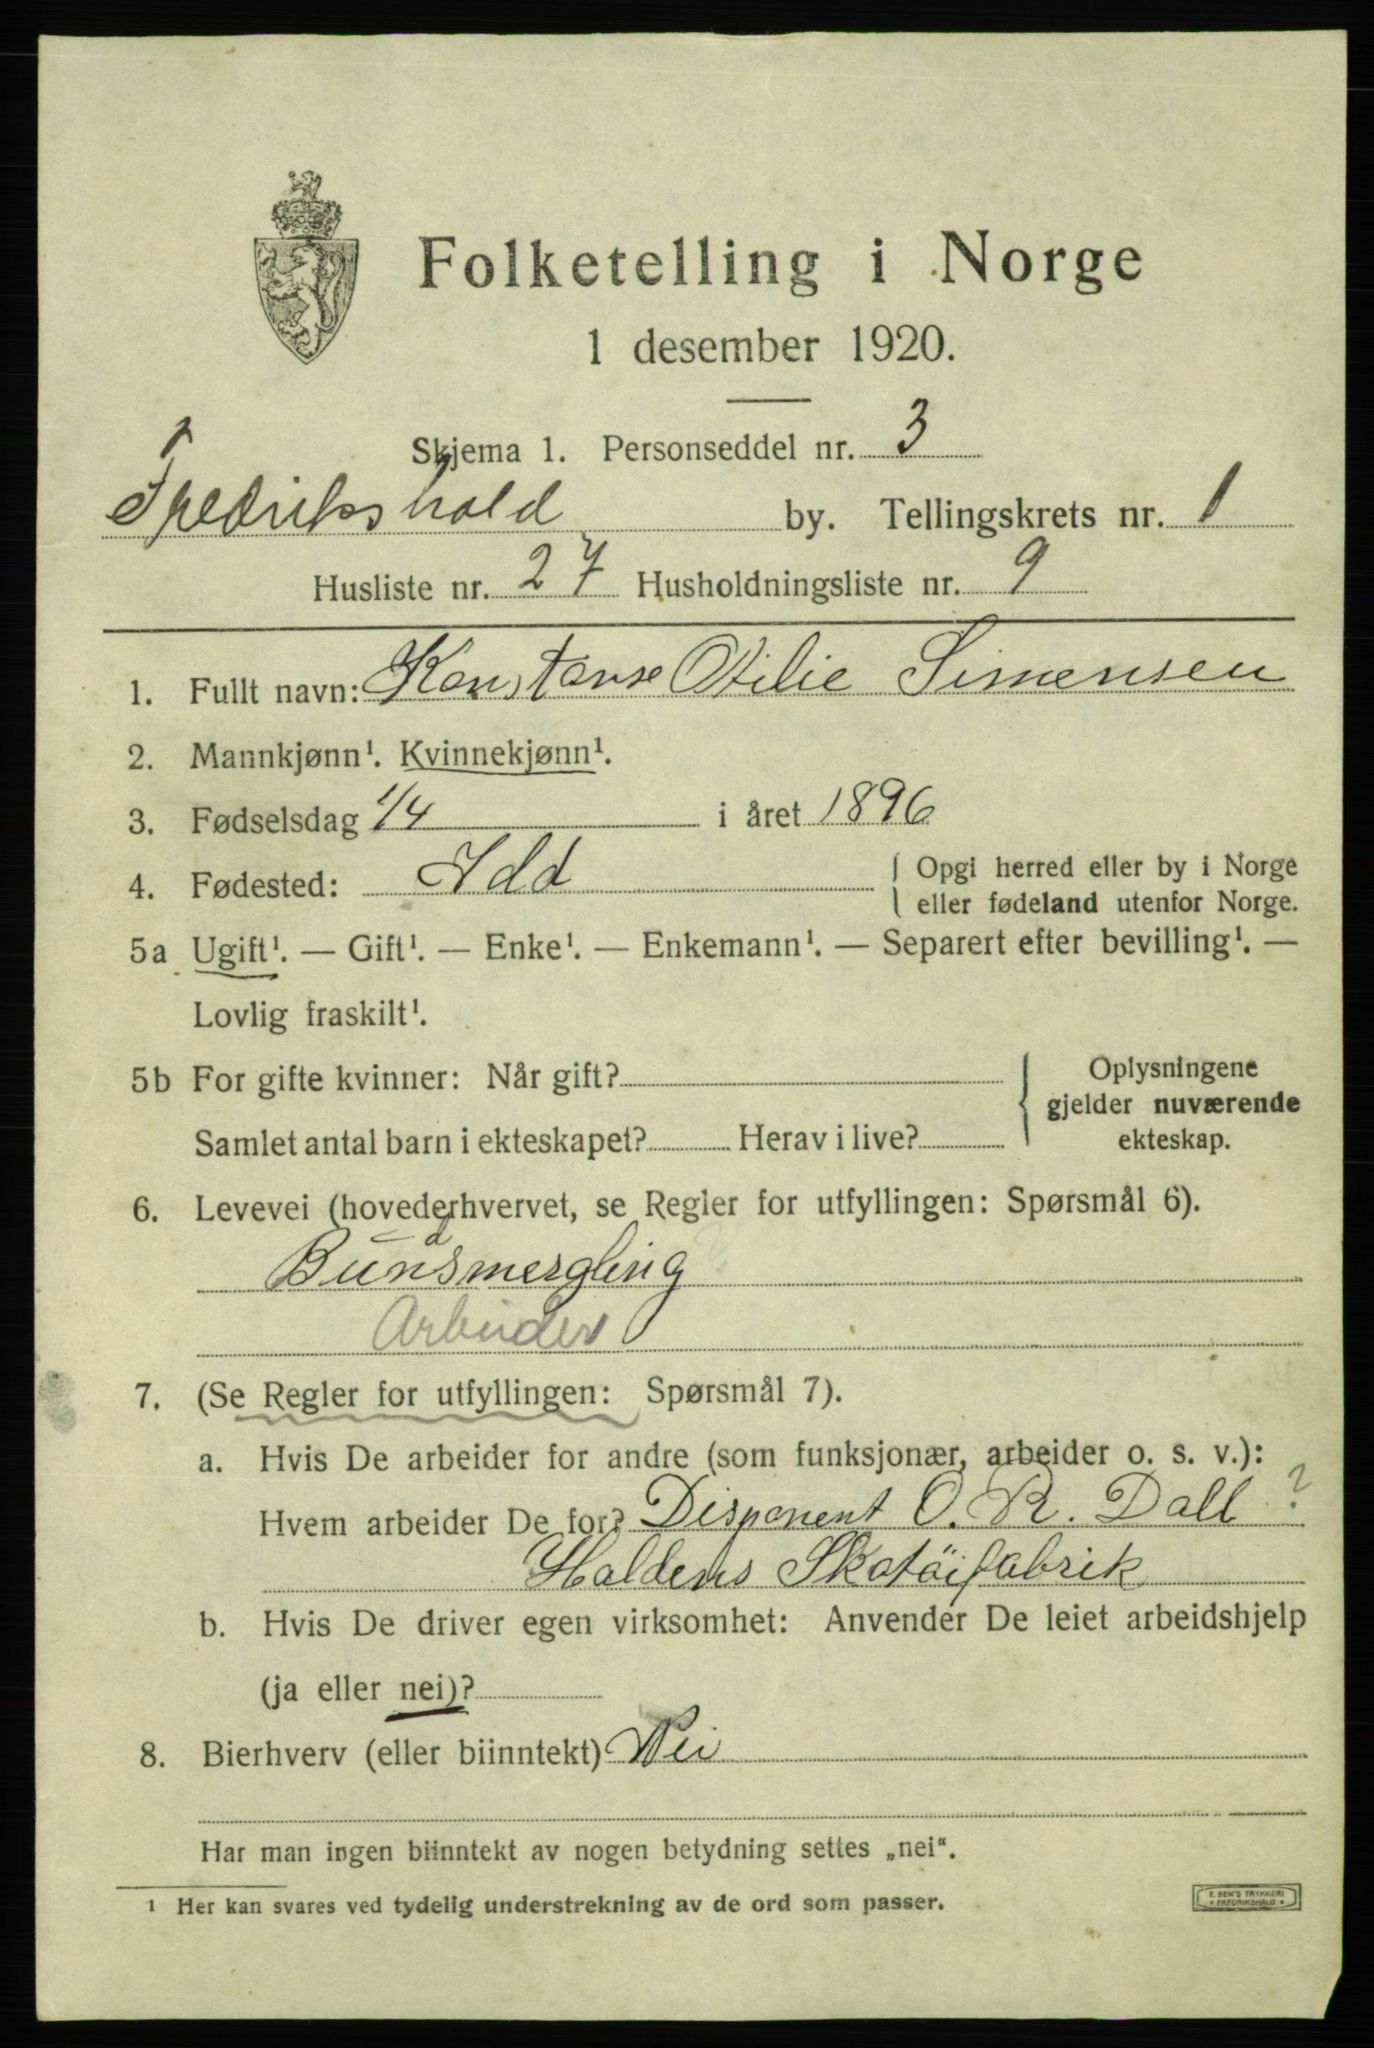 Folketelling i Norge
1 desember 1920.
Skjema 1. Personseddel nr. 3
Fredrikshald by. Tellingskrets nr. 1
Husliste nr. 27 Husholdningsliste nr. 9
1. Fullt navn: Konstanse Otilie Simensen
2. Mannkjønn¹. Kvinnekjønn¹.
3. Fødselsdag 1/4 i året 1896
4. Fødested: Idd { Opgi herred eller by i Norge
eller fødeland utenfor Norge.
5a Ugift¹. — Gift¹. — Enke¹. — Enkemann¹. — Separert efter bevilling¹. —
Lovlig fraskilt¹.
5b For gifte kvinner: Når gift?
Samlet antal barn i ekteskapet? Herav i live?
{ Oplysningene
gjelder nuværende
ekteskap.
6. Levevei (hovederhvervet, se Regler for utfyllingen: Spørsmål 6).
Bundsmergling
Arbeider
7. (Se Regler for utfyllingen: Spørsmål 7).
a. Hvis De arbeider for andre (som funksjonær, arbeider o. s. v.):
Hvem arbeider De for? Disponent O. R. Dall ?
Haldens Skotöifabrik
b. Hvis De driver egen virksomhet: Anvender De leiet arbeidshjelp
(ja eller nei)?
8. Bierhverv (eller biinntekt) Nei
Har man ingen biinntekt av nogen betydning settes „nei“.
¹ Her kan svares ved tydelig understrekning av de ord som passer.
E. SEM'S TRYKKERI
FREDRIKSHALD